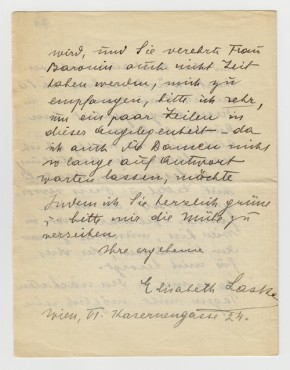 wird, und Sie verehrte Frau
Baronin auch nicht Zeit
haben werden, mich zu
empfangen, bitte ich sehr,
um ein paar Zeilen in
dieser Angelegenheit – da
ich auch die Damen nicht
so lange auf Antwort
warten lassen, möchte
Indem ich Sie herzlich grüße
bitte mir die Mühe zu
verzeihen
Ihre ergebene
Elisabeth
Wien, VI. Kasernengasse 24.